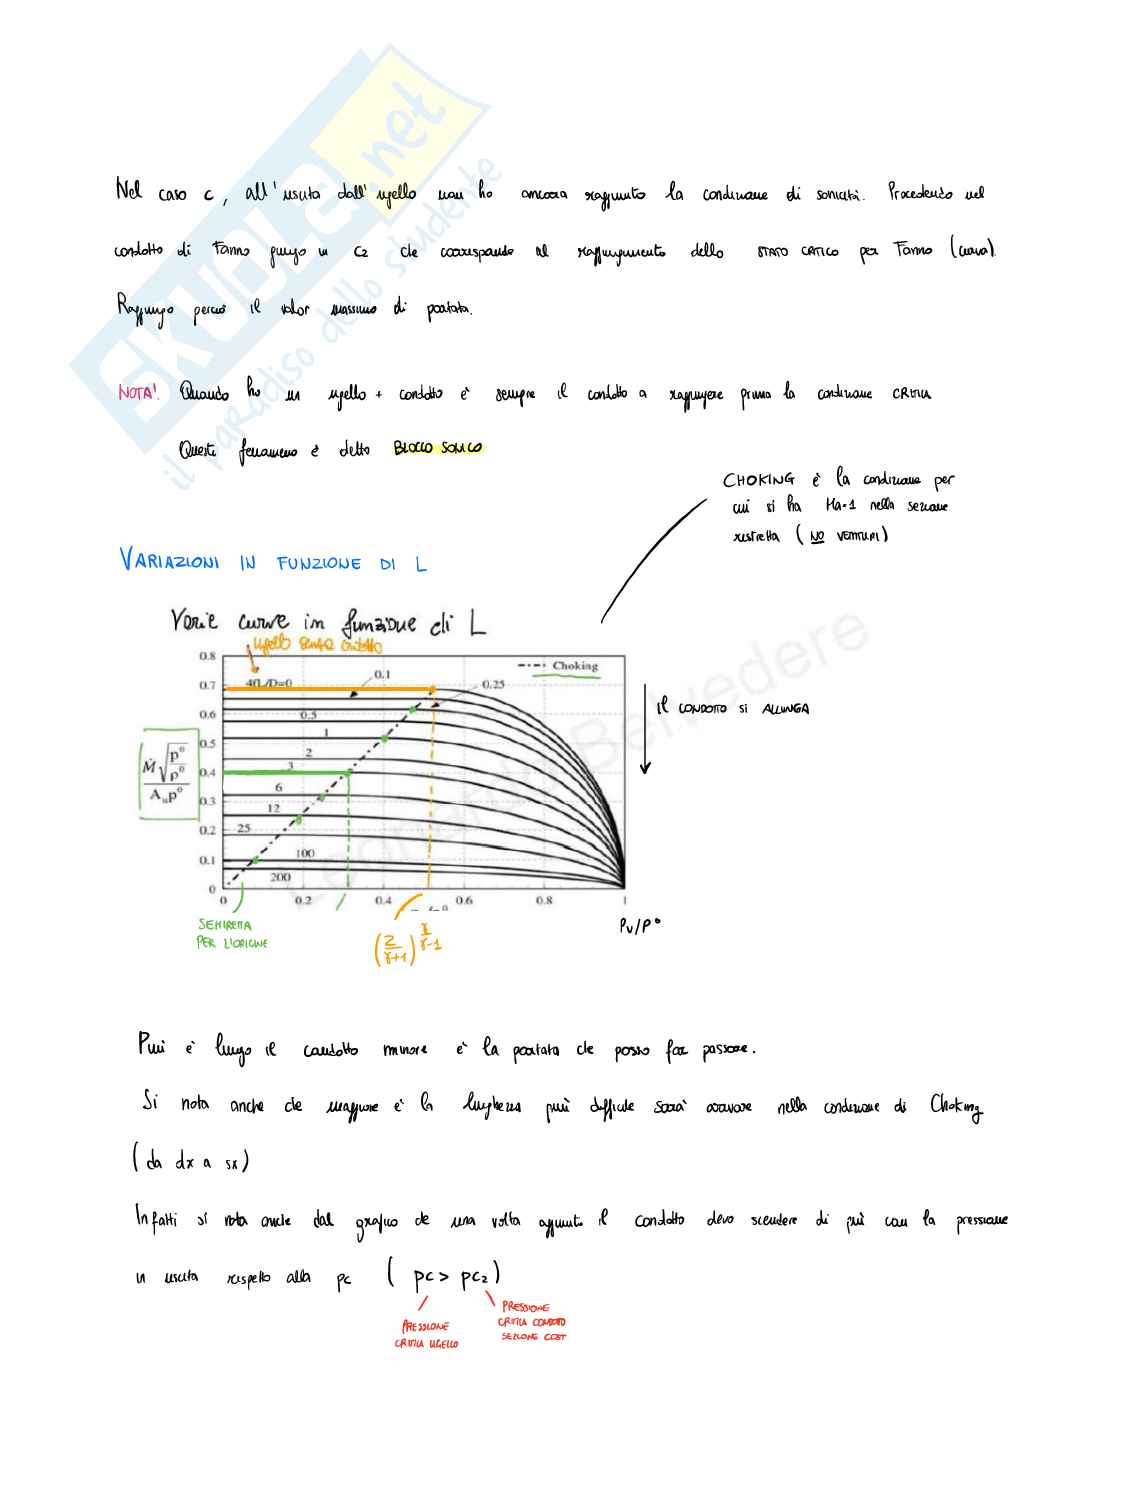 Nel caso c, all'uscita dall'ugello non ho ancora raggiunto la condizione di sonicità. Procedendo nel
condotto di Fanno giungo in C2 che corrisponde al raggiungimento dello STATO CRITICO per Fanno (curva).
Raggiungo perciò il valor massimo di portata.
NOTA! Quando ho un ugello + condotto è sempre il condotto a raggiungere prima la condizione CRITICA
Questo fenomeno è detto BLOCCO SONICO
CHOKING è la condizione per
cui si ha Ma=1 nella sezione
ristretta (NO VENTURI)
VARIAZIONI IN FUNZIONE DI L
Varie curve in funzione di L
ugello senza condotto
0.8
0.7
0.6
0.5
0.4
0.3
0.2
0.1
0
4fL/D=0
0.1
0.25
0.5
1
2
3
6
12
25
100
200
Choking
Ṁ √(p°/ρ°) / (Aᵤp°)
0 0.2 0.4 0.6 0.8 1
IL CONDOTTO SI ALLUNGA
SEMIRETTA
PER L'ORIGINE
(2/(γ+1))^(γ/(γ-1))
Pu/P°
Più è lungo il condotto minore è la portata che posso far passare.
Si nota anche che maggiore è la lunghezza più difficile sarà arrivare nella condizione di Choking
(da dx a sx)
Infatti si nota anche dal grafico che una volta aggiunto il condotto devo scendere di più con la pressione
in uscita rispetto alla pc (pc > pc2)
PRESSIONE
CRITICA UGELLO
PRESSIONE
CRITICA CONDOTTO
SEZIONE COST
SKUOLA.net
il paradiso dello studente
Belvedere